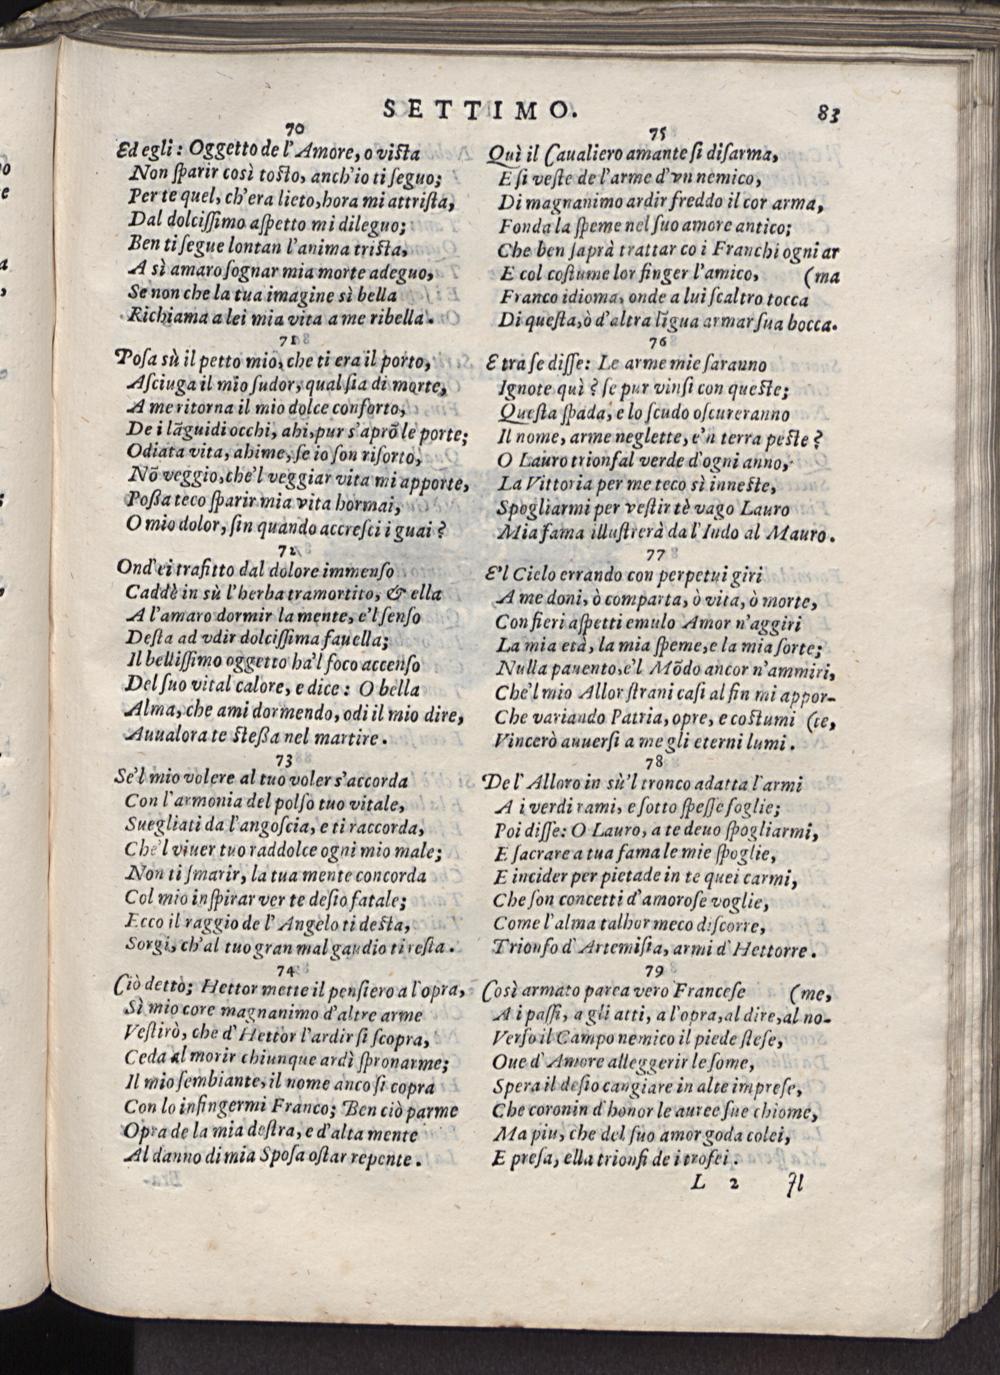 SETTIMO. 83
70
Ed egli: Oggetto de l'Amore, o vista
Non sparir così tosto, anch'io ti seguo;
Per te quel, ch'era lieto, hora mi attrista,
Dal dolcissimo aspetto mi dileguo;
Ben ti segue lontan l'anima trista,
A sì amaro sognar mia morte adeguo,
Se non che la tua imagine sì bella
Richiama a lei mia vita a me ribella.
71
Posa sù il petto mio, che ti era il porto,
Asciuga il mio sudor, qual sia di morte,
A me ritorna il mio dolce conforto,
De i lãguidi occhi, ahi, pur s'aprõ le porte;
Odiata vita, ahime, se io son risorto,
Nõ veggio, che'l veggiar vita mi apporte,
Possa teco sparir mia vita hormai,
O mio dolor, sin quando accresci i guai?
72
Ond'ei trafitto dal dolore immenso
Caddè in sù l'herba tramortito, & ella
A l'amaro dormir la mente, e'l senso
Desta ad vdir dolcissima fauella;
Il bellissimo oggetto ha'l foco accenso
Del suo vital calore, e dice: O bella
Alma, che ami dormendo, odi il mio dire,
Auualora te stessa nel martire.
73
Se'l mio volere al tuo voler s'accorda
Con l'armonia del polso tuo vitale,
Suegliati da l'angoscia, e ti raccorda,
Che'l viuer tuo raddolce ogni mio male;
Non ti smarir, la tua mente concorda
Col mio inspirar ver te desio fatale;
Ecco il raggio de l'Angelo ti desta,
Sorgi, ch'al tuo gran mal gaudio ti resta.
74
Ciò detto; Hettor mette il pensiero a l'opra,
Sì mio core magnanimo d'altre arme
Vestirò, che d'Hettor l'ardir si scopra,
Ceda al morir chiunque ardì spronarme;
Il mio sembiante, il nome anco si copra
Con lo infingermi Franco; Ben ciò parme
Opra de la mia destra, e d'alta mente
Al danno di mia Sposa ostar repente.
75
Quì il Caualiero amante si disarma,
E si veste de l'arme d'vn nemico,
Di magnanimo ardir freddo il cor arma,
Fonda la speme nel suo amore antico;
Che ben saprà trattar co i Franchi ogni ar
E col costume lor finger l'amico, (ma
Franco idioma, onde a lui scaltro tocca
Di questa, ò d'altra lĩgua armar sua bocca.
76
E tra se disse: Le arme mie saranno
Ignote quì? se pur vinsi con queste;
Questa spada, e lo scudo oscureranno
Il nome, arme neglette, e'n terra peste?
O Lauro trionfal verde d'ogni anno,
La Vittoria per me teco sì inneste,
Spogliarmi per vestir tè vago Lauro
Mia fama illustrerà da l'Indo al Mauro.
77
E'l Cielo errando con perpetui giri
A me doni, ò comparta, ò vita, ò morte,
Con fieri aspetti emulo Amor n'aggiri
La mia età, la mia speme, e la mia sorte;
Nulla pauento, e'l Mõdo ancor n'ammiri,
Che'l mio Allor strani casi al fin mi appor-
Che variando Patria, opre, e costumi (te,
Vincerò auuersi a me gli eterni lumi.
78
De l'Alloro in sù'l tronco adatta l'armi
A i verdi rami, e sotto spesse foglie;
Poi disse: O Lauro, a te deuo spogliarmi,
E sacrare a tua fama le mie spoglie,
E incider per pietade in te quei carmi,
Che son concetti d'amorose voglie,
Come l'alma talhor meco discorre,
Trionfo d'Artemisia, armi d'Hettorre.
79
Così armato parea vero Francese (me,
A i passi, a gli atti, a l'opra, al dire, al no-
Verso il Campo nemico il piede stese,
Oue d'Amore alleggerir le some,
Spera il desio cangiare in alte imprese,
Che coronin d'honor le auree sue chiome,
Ma piu, che del suo amor goda colei,
E presa, ella trionfi de i trofei.
L 2 Il